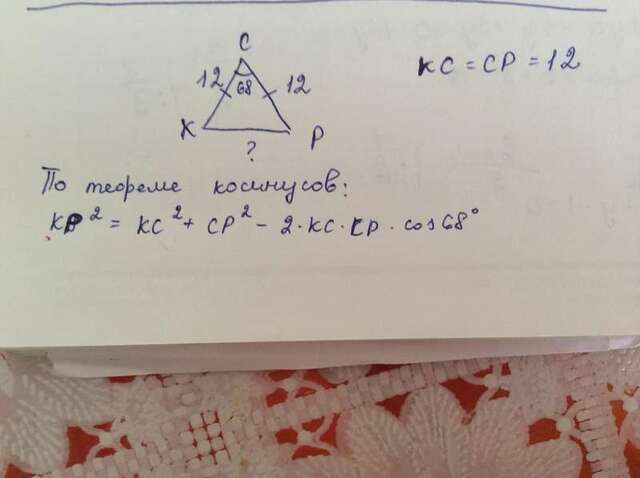 C
12 68 12
K P
?
KC = CP = 12
По теореме косинусов:
KP² = KC² + CP² - 2·KC·CP·cos68°